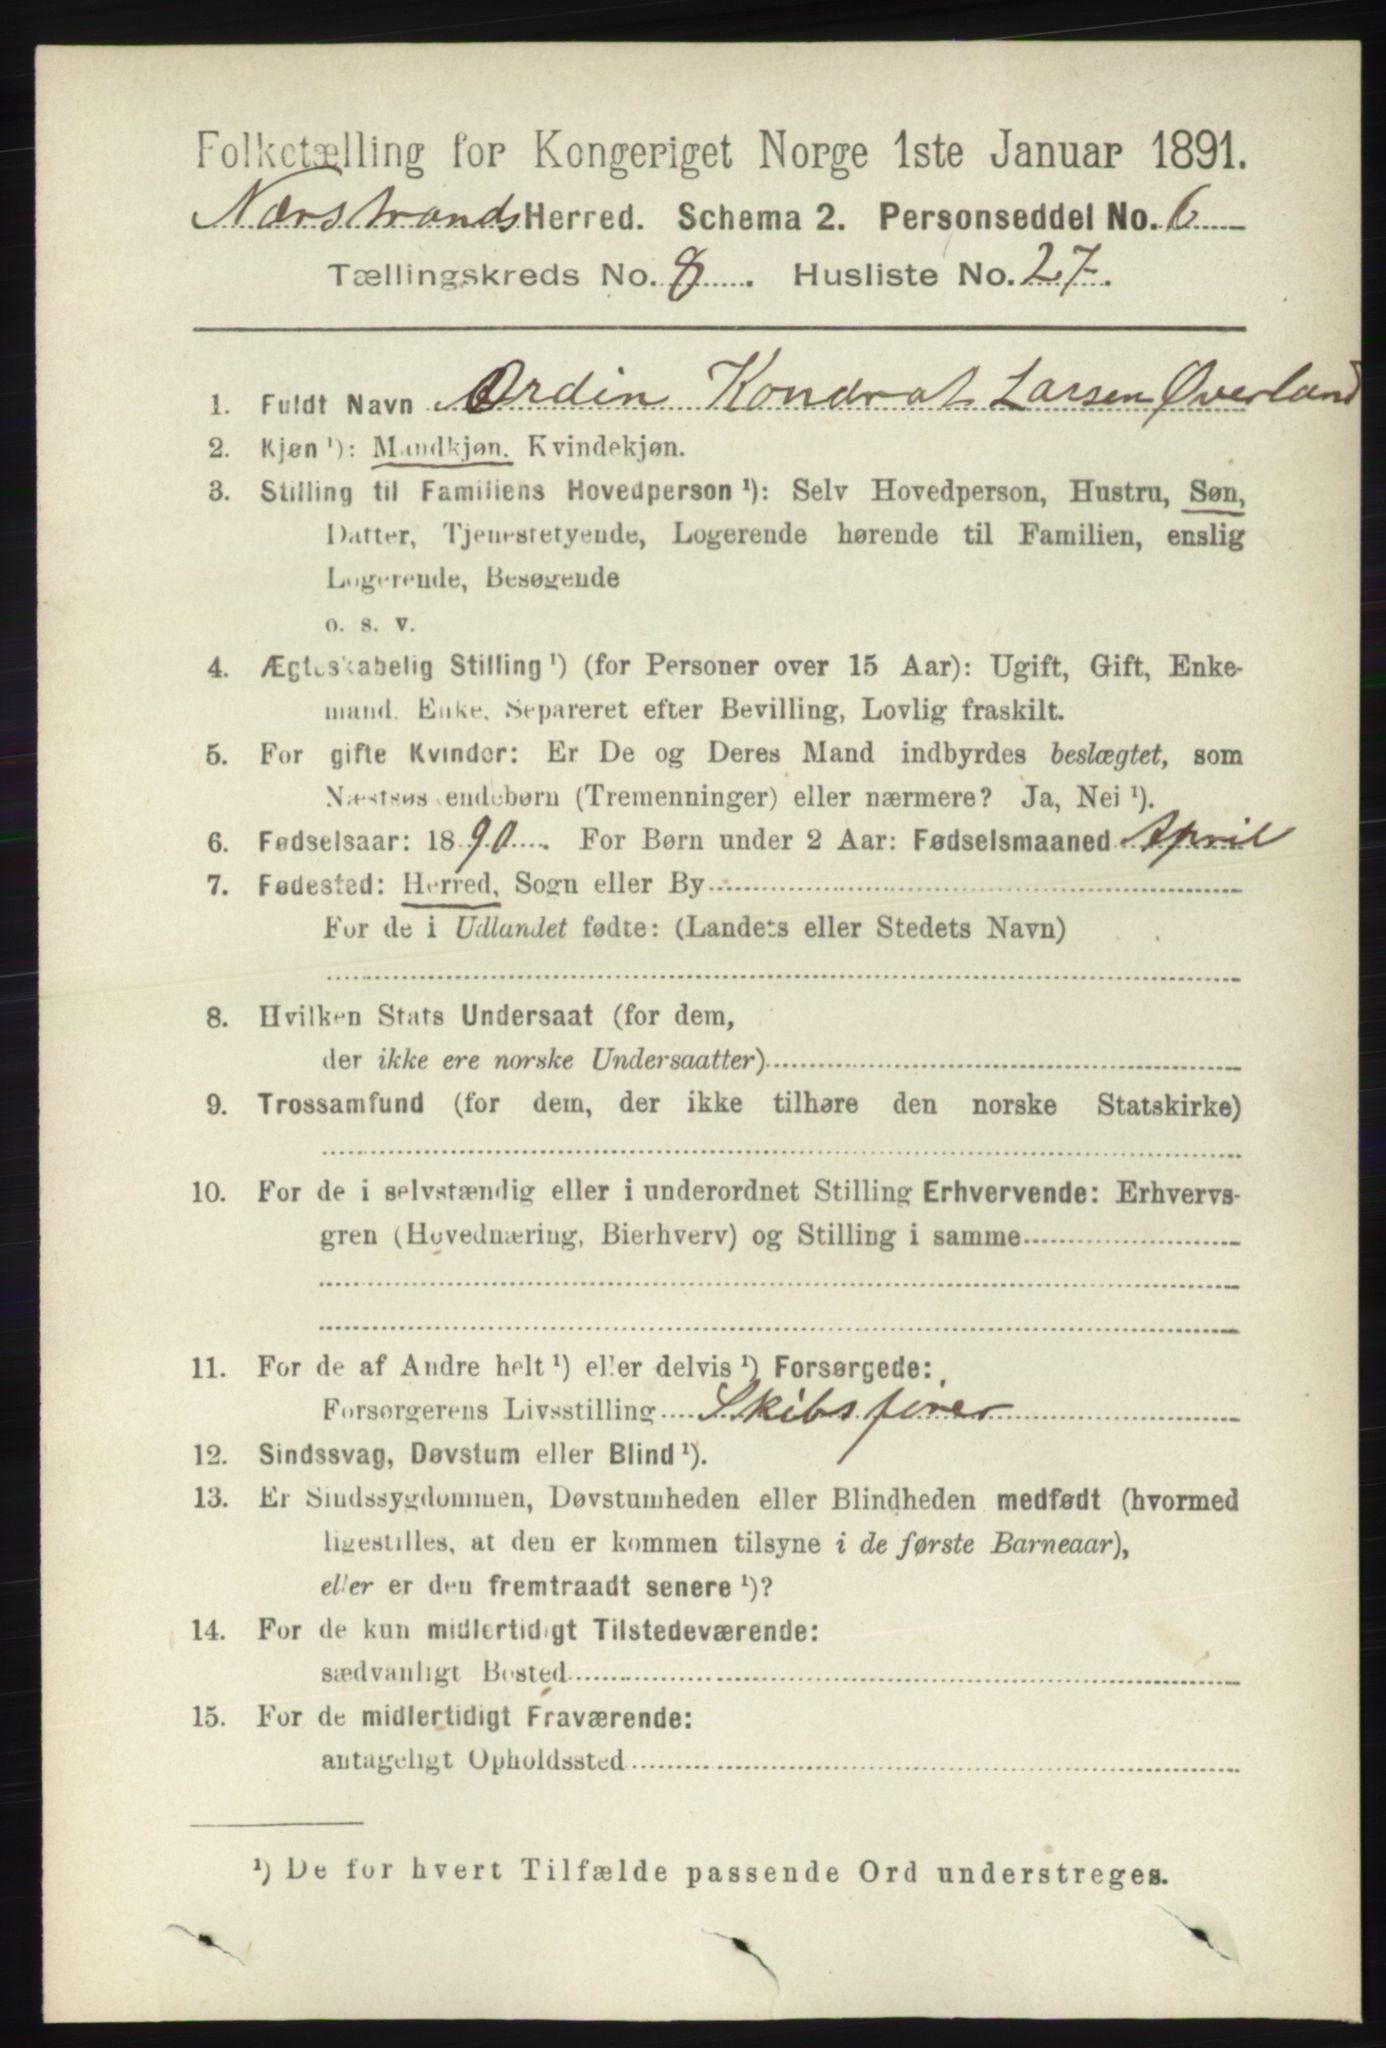 Folketælling for Kongeriget Norge 1ste Januar 1891.
Nærstrands Herred. Schema 2. Personseddel No. 6
Tællingskreds No. 8. Husliste No. 27.
1. Fuldt Navn Ordin Kondrat Larsen Øverland
2. Kjøn ¹): Mandkjøn. Kvindekjøn.
3. Stilling til Familiens Hovedperson ¹): Selv Hovedperson, Hustru, Søn,
Datter, Tjenestetyende, Logerende hørende til Familien, enslig
Logerende, Besøgende
o. s. v.
4. Ægteskabelig Stilling ¹) (for Personer over 15 Aar): Ugift, Gift, Enke-
mand, Enke, Separeret efter Bevilling, Lovlig fraskilt.
5. For gifte Kvinder: Er De og Deres Mand indbyrdes beslægtet, som
Næstsøskendebørn (Tremenninger) eller nærmere? Ja, Nei ¹).
6. Fødselsaar: 1890. For Børn under 2 Aar: Fødselsmaaned April
7. Fødested: Herred, Sogn eller By
For de i Udlandet fødte: (Landets eller Stedets Navn)
8. Hvilken Stats Undersaat (for dem,
der ikke ere norske Undersaatter)
9. Trossamfund (for dem, der ikke tilhøre den norske Statskirke)
10. For de i selvstændig eller i underordnet Stilling Erhvervende: Erhvervs-
gren (Hovednæring, Bierhverv) og Stilling i samme
11. For de af Andre helt ¹) eller delvis ¹) Forsørgede:
Forsørgerens Livsstilling Skibsfører
12. Sindssvag, Døvstum eller Blind ¹).
13. Er Sindssygdommen, Døvstumheden eller Blindheden medfødt (hvormed
ligestilles, at den er kommen tilsyne i de første Barneaar),
eller er den fremtraadt senere ¹)?
14. For de kun midlertidigt Tilstedeværende:
sædvanligt Bosted
15. For de midlertidigt Fraværende:
antageligt Opholdssted
¹) De for hvert Tilfælde passende Ord understreges.